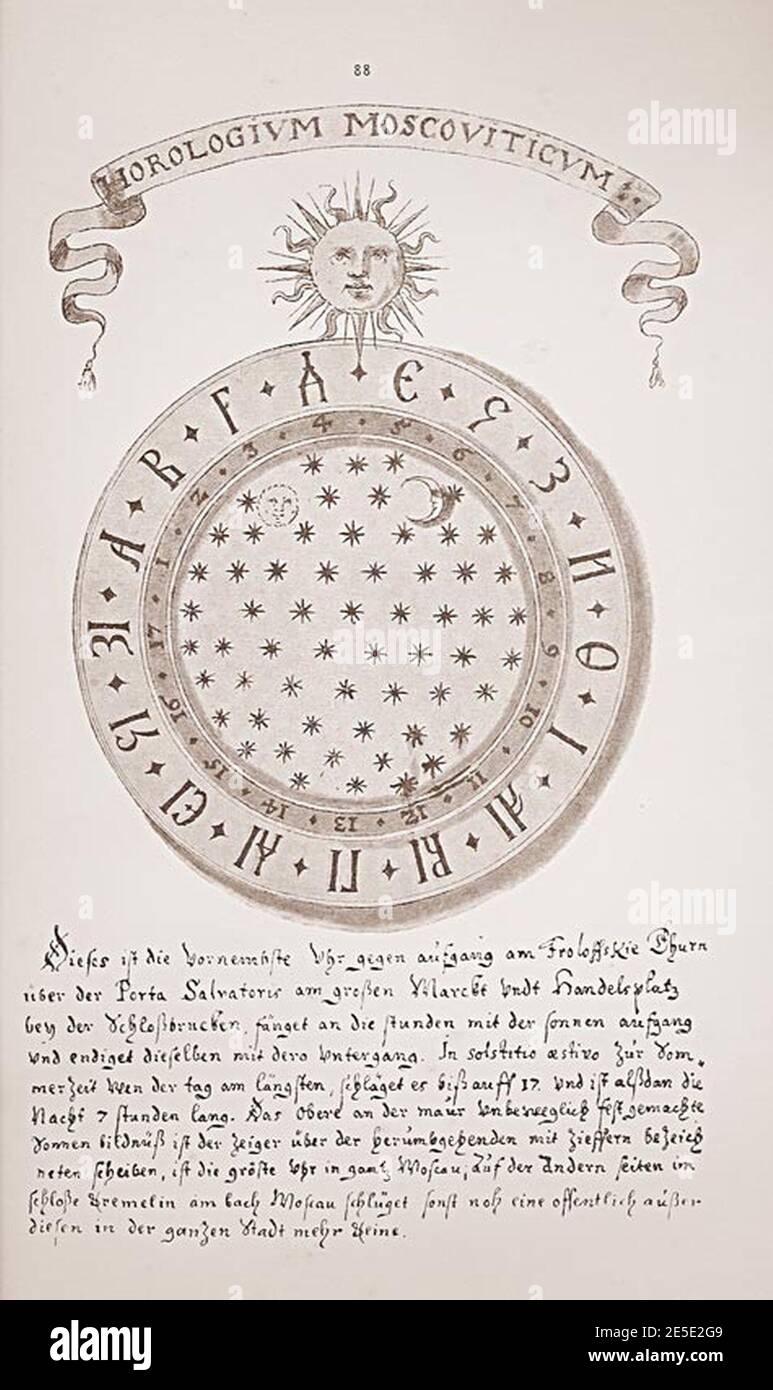 88
HOROLOGIVM MOSCOVITICVM
А В Г Д Є Ѕ З И Ѳ І АІ ВІ ГІ ДІ ЄІ ЅІ ЗІ
1 2 3 4 5 6 7 8 9 10 11 12 13 14 15 16 17
Dieses ist die vornembste Vhr gegen aufgang am Froloffskie Thurn
über der Porta Salvatoris am großen Marckt vndt Handelsplatz
bey der Schloßbrucken, fänget an die stunden mit der sonnen aufgang
vnd endiget dieselben mit dero vntergang. In solstitio æstivo zür Som=
merzeit wen der tag am längsten, schläget es biß auff 17. vnd ist alßdan die
Nacht 7 stunden lang. Das Obere an der maür vnbeweglich fest gemachte
Sonnen bildnüß ist der Zeiger über der herumbgehenden mit zieffern bezeich
neten scheiben, ist die gröste Vhr in gantz Moscau, auf der andern seiten im
schloße Kremelin am bach Moscau schlüget sonst noh eine offentlich außer
diesen in der ganzen Stadt mehr Keine.
alamy
alamy
alamy
alamy
alamy
Image ID: 2E5E2G9
www.alamy.com